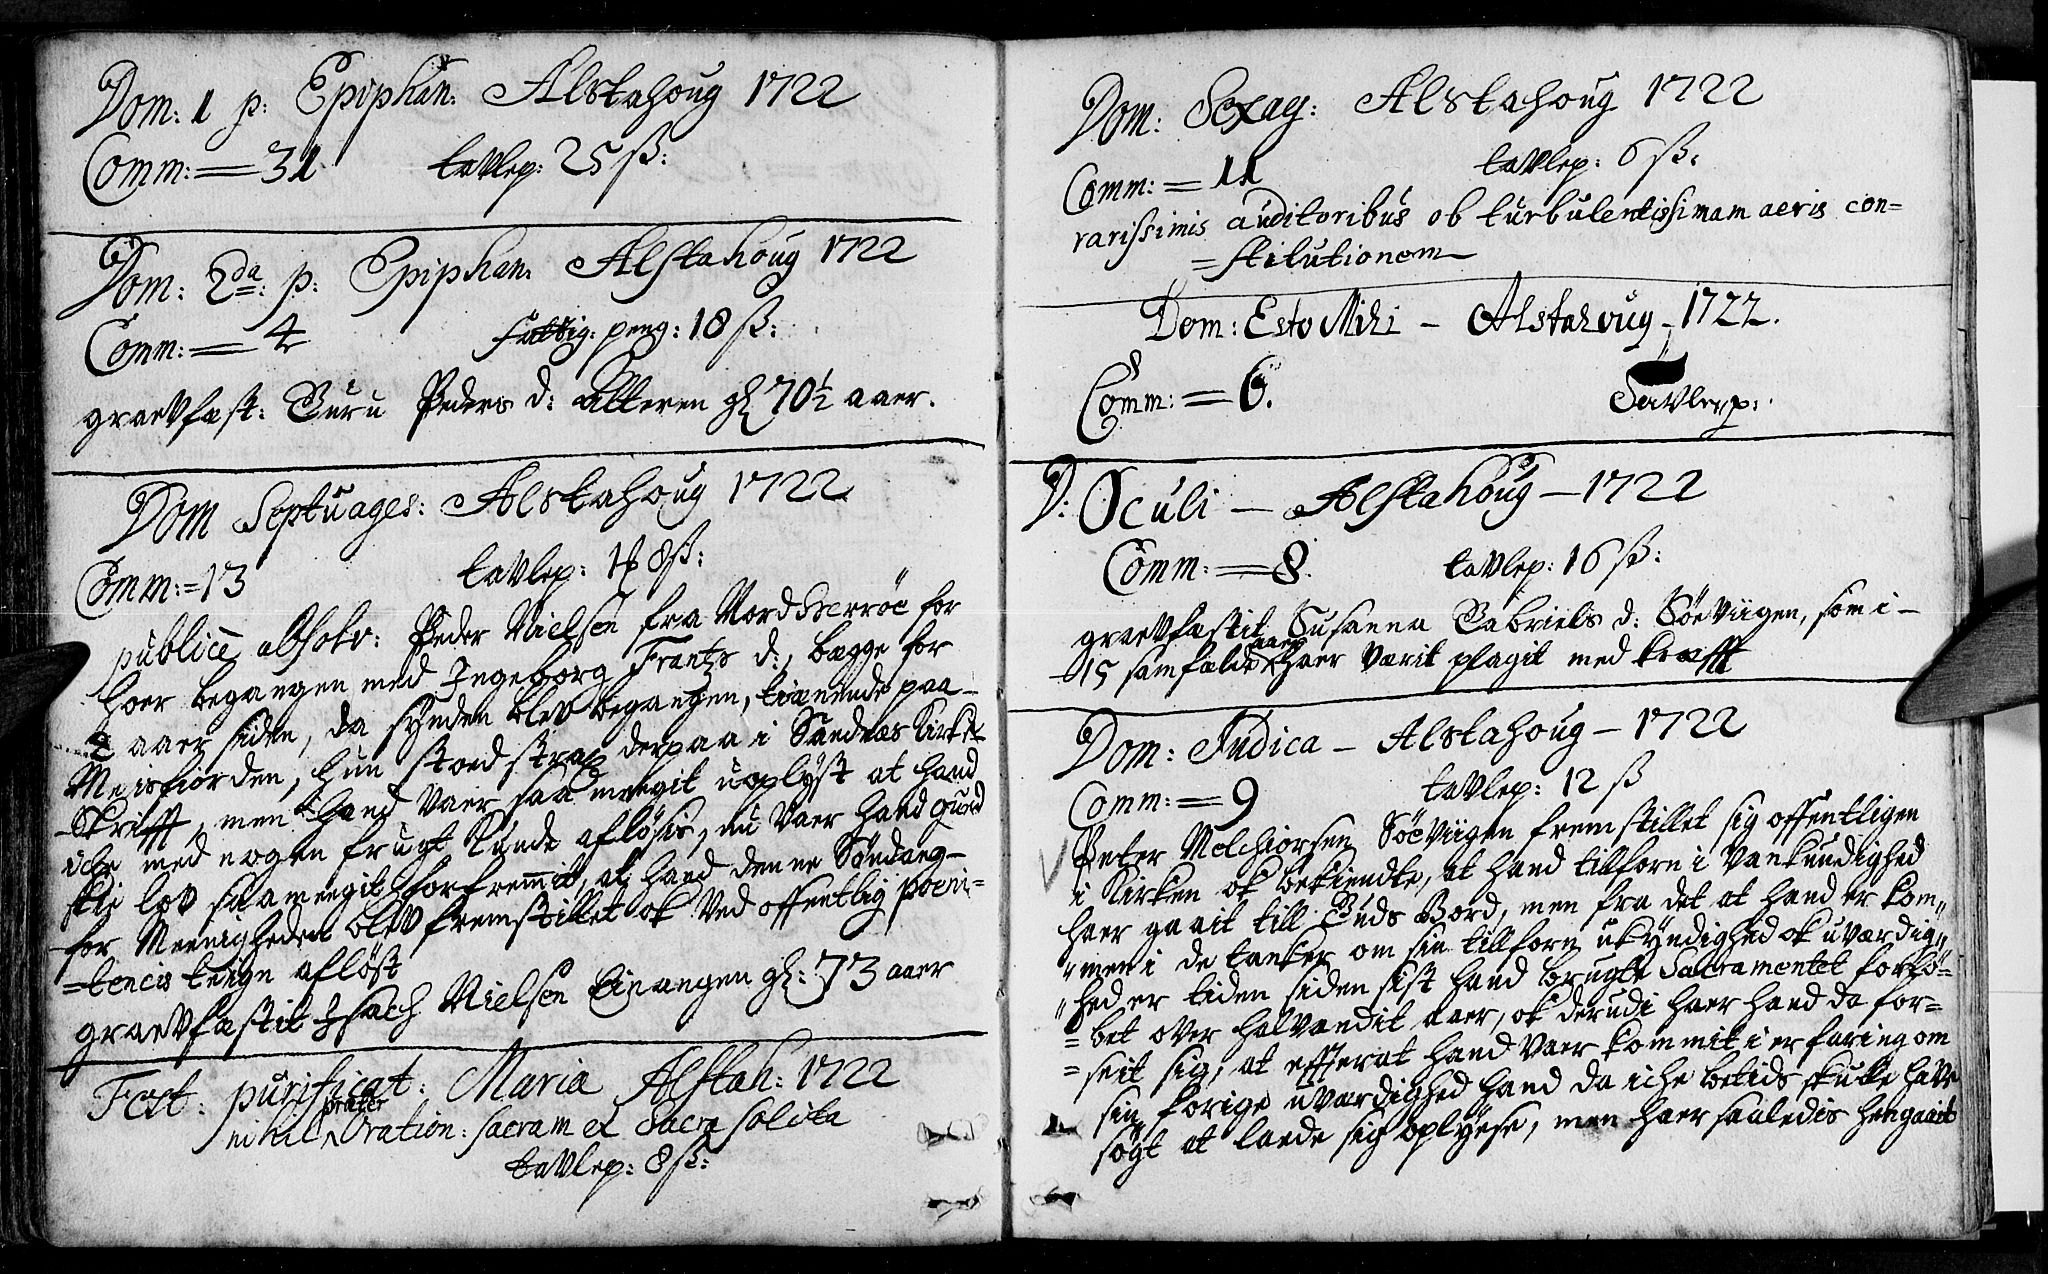 Dom: 1 p: Epiphan: Alstahoug 1722
Comm: = 31 tavlep: 25 ß:
Dom: 2da: p: Epiphan: Alstahoug 1722
Comm: = 4 Fattig: peng: 18 ß:
graevfæst: Guru Peders d: Alteren gl 70½ aaer.
Dom Septuages: Alstahoug 1722
Comm: = 13 tavlep: 1 8 ß:
publicè absolv: Peder Nielsen fra Nord Herröe for
hoer begangen med Ingeborg Frantz d:, begge for
2 aaer siden, da synden blev begangen, tienende paa
Meisfiorden, hun stoed strax derpaa i Sandnæs Kirke
Skrifft, men hand vaer saa meegit uoplyst at hand
iche med nogen frugt kunde aflösis, nu vaer hand Gud
skie lov saa meegit forfremmit, at hand denne Söndag
for Meenigheden blev fremstillet ok ved offentlig poeni=
=tencis teign aflöst
graevfæstit Isach Nielsen Einangen gl: 73 aaer
Fest: purificat: Maria Alstah: 1722
nihil præter Oration: sacram et Sacra solita
tavlep: 8 ß:
Dom: Sexag: Alstahoug 1722
Comm: = 11 tavlep: 6 ß:
rarissimis auditoribus ob turbulentissimam aeris con=
=stitutionem
Dom: Esto Mihi - Alstahoug - 1722.
Comm: = 6. Tavlep:
D: Oculi - Alstahoug - 1722
Comm: = 8. tavlep: 16 ß:
graevfæstit Susanna Gabriels d: Söeviigen, som i
15 samfælde aaer haer værit plagit med kræfft
Dom: Judica - Alstahoug - 1722
Comm: = 9 tavlep: 12 ß
Peter Melchiorsen Söeviigen fremstillet sig offentligen
i Kirken ok bekiendte, at hand tillforn i Vankundighed
haer gaait till Guds Bord, men fra det at hand er kom„
„men i de tanker om sin tillforn ukyndighed ok uværdig„
„hed er tiden siden sist hand brugte Sacramentet forlö=
=bet over halvandit aaer, ok derudi haer hand da for=
=seit sig, at effterat hand vaer kommit i erfaring om
sin forige uværdighed hand da iche betids skulle have
sögt at laede sig oplyse, men haer saaledis hengaait